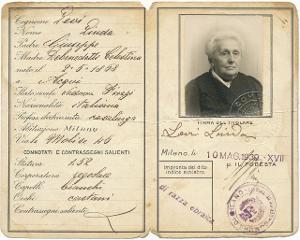 Cognome Levi
Nome Linda
Padre Giuseppe
Madre Debenedetti Celestina
nato il 2-5-1858
a Acqui
Stato civile vedova
Nazionalità Italiana
Professione casalinga
Abitazione Milano
CONNOTATI E CONTRASSEGNI SALIENTI
Statura 1.52
Corporatura regolare
Capelli bianchi
Occhi castani
Contrassegni salienti
FIRMA DEL TITOLARE
Levi Linda
Milano, li 10 MAG. 1939 - XVII
Impronta del dito
indice sinistro
IL PODESTÀ
di razza ebraica